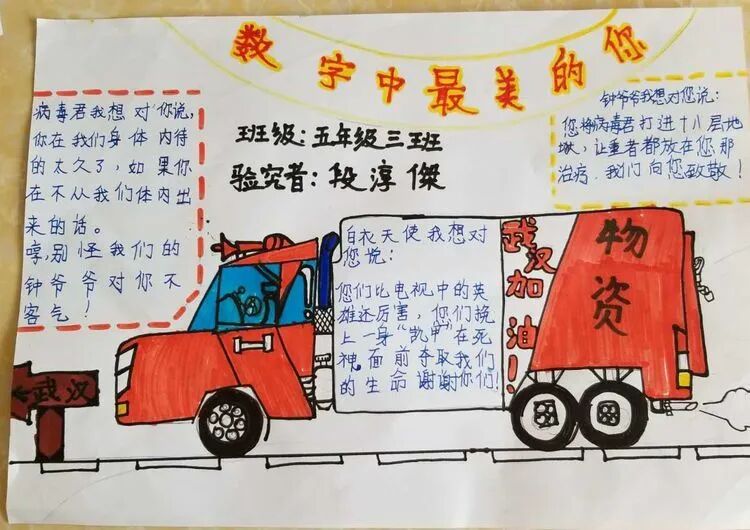 数字中最美的你
班级:五年级三班
验究者:段淳傑
病毒君我想对你说,
你在我们身体内待
的太久了,如果你
在不从我们体内出
来的话。
哼,别怪我们的
钟爷爷对你不
客气!
钟爷爷我想对您说:
您将病毒君打进十八层地
狱,让重者都放在您那
治疗.我们向您致敬!
白衣天使我想对
您说:
您们比电视中的英
雄还厉害,您们挽
上一身“凯甲”在死
神面前夺取我们
的生命谢谢你们!
武汉加油!!
物资
武汉